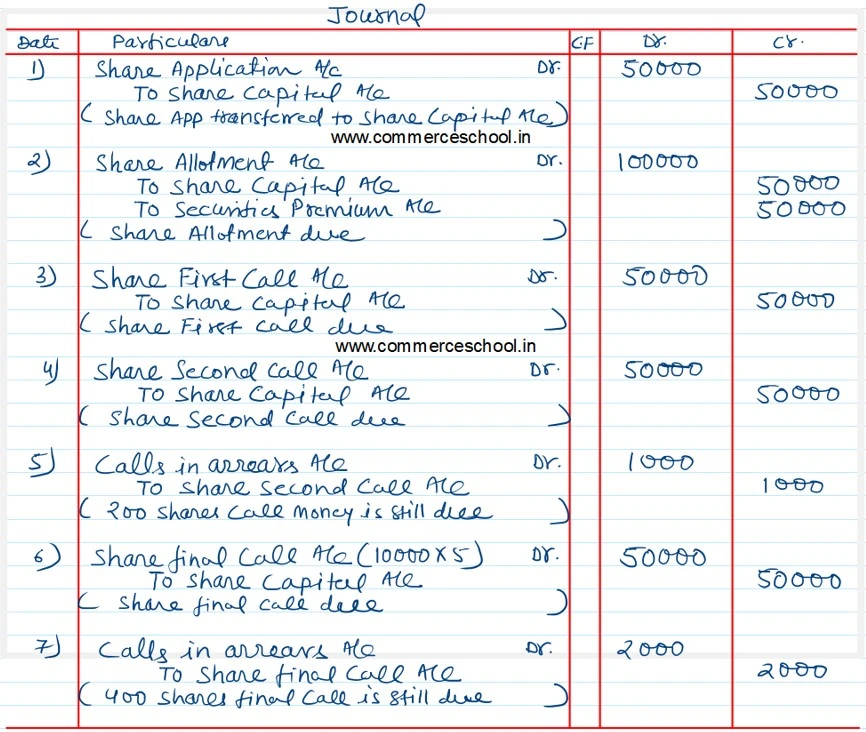 Journal
Date Particulars CF Dr. Cr.
1) Share Application A/c Dr. 50000
To Share Capital A/c 50000
( Share App transferred to Share Capital A/c )
www.commerceschool.in
2) Share Allotment A/c Dr. 100000
To Share Capital A/c 50000
To Securities Premium A/c 50000
( Share Allotment due )
3) Share First Call A/c Dr. 50000
To Share Capital A/c 50000
( Share First Call due )
www.commerceschool.in
4) Share Second Call A/c Dr. 50000
To Share Capital A/c 50000
( Share Second Call due )
5) Calls in arrears A/c Dr. 1000
To Share Second Call A/c 1000
( 200 Shares Call Money is still due )
6) Share final Call A/c (10000 X 5) Dr. 50000
To Share Capital A/c 50000
( Share final call due )
7) Calls in arrears A/c Dr. 2000
To Share final Call A/c 2000
( 400 Shares final Call is still due )